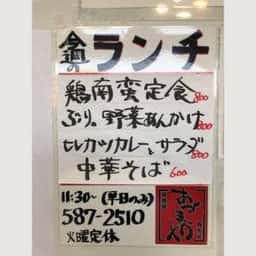 今週のランチ
鶏南蛮定食 800
ぶり。野菜あんかけ 800
ヒレカツカレー、サラダ 800
中華そば 600
11:30~(平日のみ)
587-2510
火曜定休
あづま灯